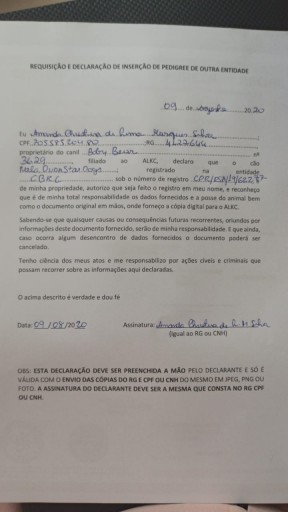 REQUISIÇÃO E DECLARAÇÃO DE INSERÇÃO DE PEDIGREE DE OUTRA ENTIDADE
09 de agosto 2020
Eu Amanda Christina de Lima Marques Silva,
CPF, RG 4227644
proprietário do canil Baby Bear, nº
3629, filiado ao ALKC, declara que o cão
Dogs, registrado na entidade
CBKC sob o número de registro
de minha propriedade, autorizo que seja feito o registro em meu nome, e reconheço
que é de minha total responsabilidade os dados fornecidos e a posse do animal bem
como o documento original em mãos, onde forneço a cópia digital para o ALKC.
Sabendo-se que quaisquer causas ou consequências futuras recorrentes, oriundos por
informações deste documento fornecido, serão de minha responsabilidade. E que ainda,
caso ocorra algum desencontro de dados fornecidos o documento poderá ser
cancelado.
Tenho ciência dos meus atos e me responsabilizo por ações cíveis e criminais que
possam recorrer sobre as informações aqui declaradas.
O acima descrito é verdade e dou fé
Data: 09/08/2020 Assinatura: Amanda Christina de L. M. Silva
(igual ao RG ou CNH)
OBS: ESTA DECLARAÇÃO DEVE SER PREENCHIDA A MÃO PELO DECLARANTE E SÓ É
VÁLIDA COM O ENVIO DAS CÓPIAS DO RG E CPF OU CNH DO MESMO EM JPEG, PNG OU
FOTO. A ASSINATURA DO DECLARANTE DEVE SER A MESMA QUE CONSTA NO RG CPF
OU CNH.